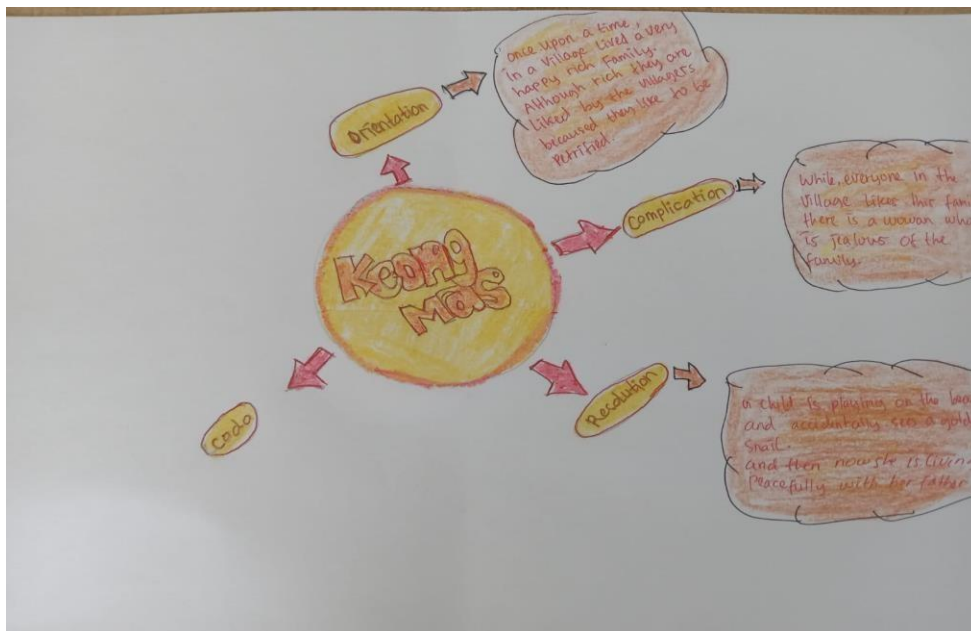 Orientation
once upon a time,
in a Village Lived a very
happy rich Family.
Although rich they are
Liked by the villagers
becaused they like to be
Petrified
Complication
While, everyone in the
Village Likes this fami
there is a wowan who
is jealous of the
family.
Keong
Mas
Resolution
a child is playing on the bea
and accidentally see a gold
Snail.
and then now she is Livin
Peacefully with her father
Coda